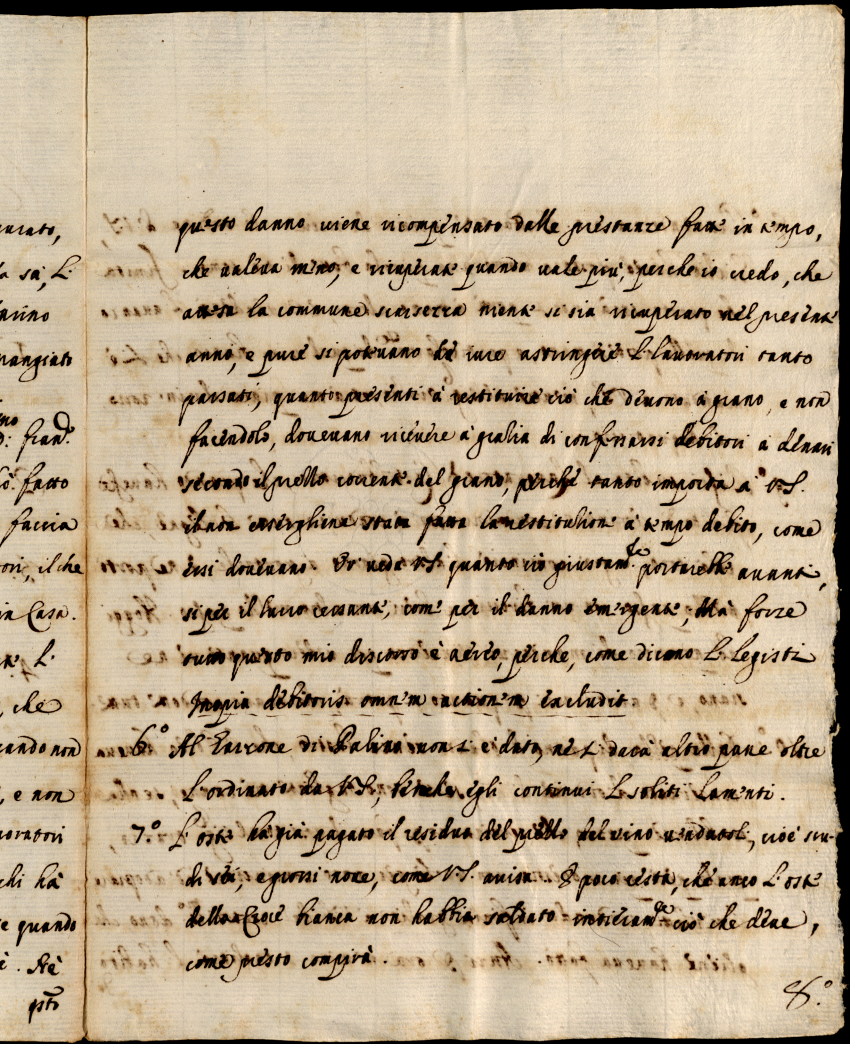 questo danno viene ricompensato dalle prestanze fatte in tempo,
che valeva meno, e ricuperate quando vale più, perche io credo, che
attesa la commune scarsezza niente si sia ricuperato nel presente
anno, e pure si potevano de iure astringere l'lavoratori tanto
passati, quanto presenti à restituire ciò che devono à grano, e non
facendolo, dovevano ricevere à gratia di confessarsi debitori à denari
secondo il prezzo corrente del grano, perche tanto importa à V.S.
il non essergliene stata fatta la restitutione à tempo debito, come
essi dovevano. Or veda V.S. quanto ciò giustam.te portarebbe avanti,
si per il lucro cessante, come per il danno emergente; Mà forze
tutto questo mio discorso è aereo, perche, come dicono l'legisti
Inopia debitoris omnem actionem excludit
6.° Al di non s'è dato, ne s' darà altro pane oltre
l'ordinato da V.S., benche egli continui l soliti lamenti.
7.° L'oste hà già pagato il residuo del prezzo del vino vendutoli, cioè scu-
di sei, e grossi nove, come V.S. avisa. E poco resta, che anco l'oste
della Croce bianca non habbia saldato intieram.te ciò che deve,
come presto compirà.
8.°
urato,
sà, L'
mangiato
fran.
fatto
faccia
tori, il che
in Casa.
L'
, che
quando non
, e non
voratori
chi hà
e quando
. Nè
qsto